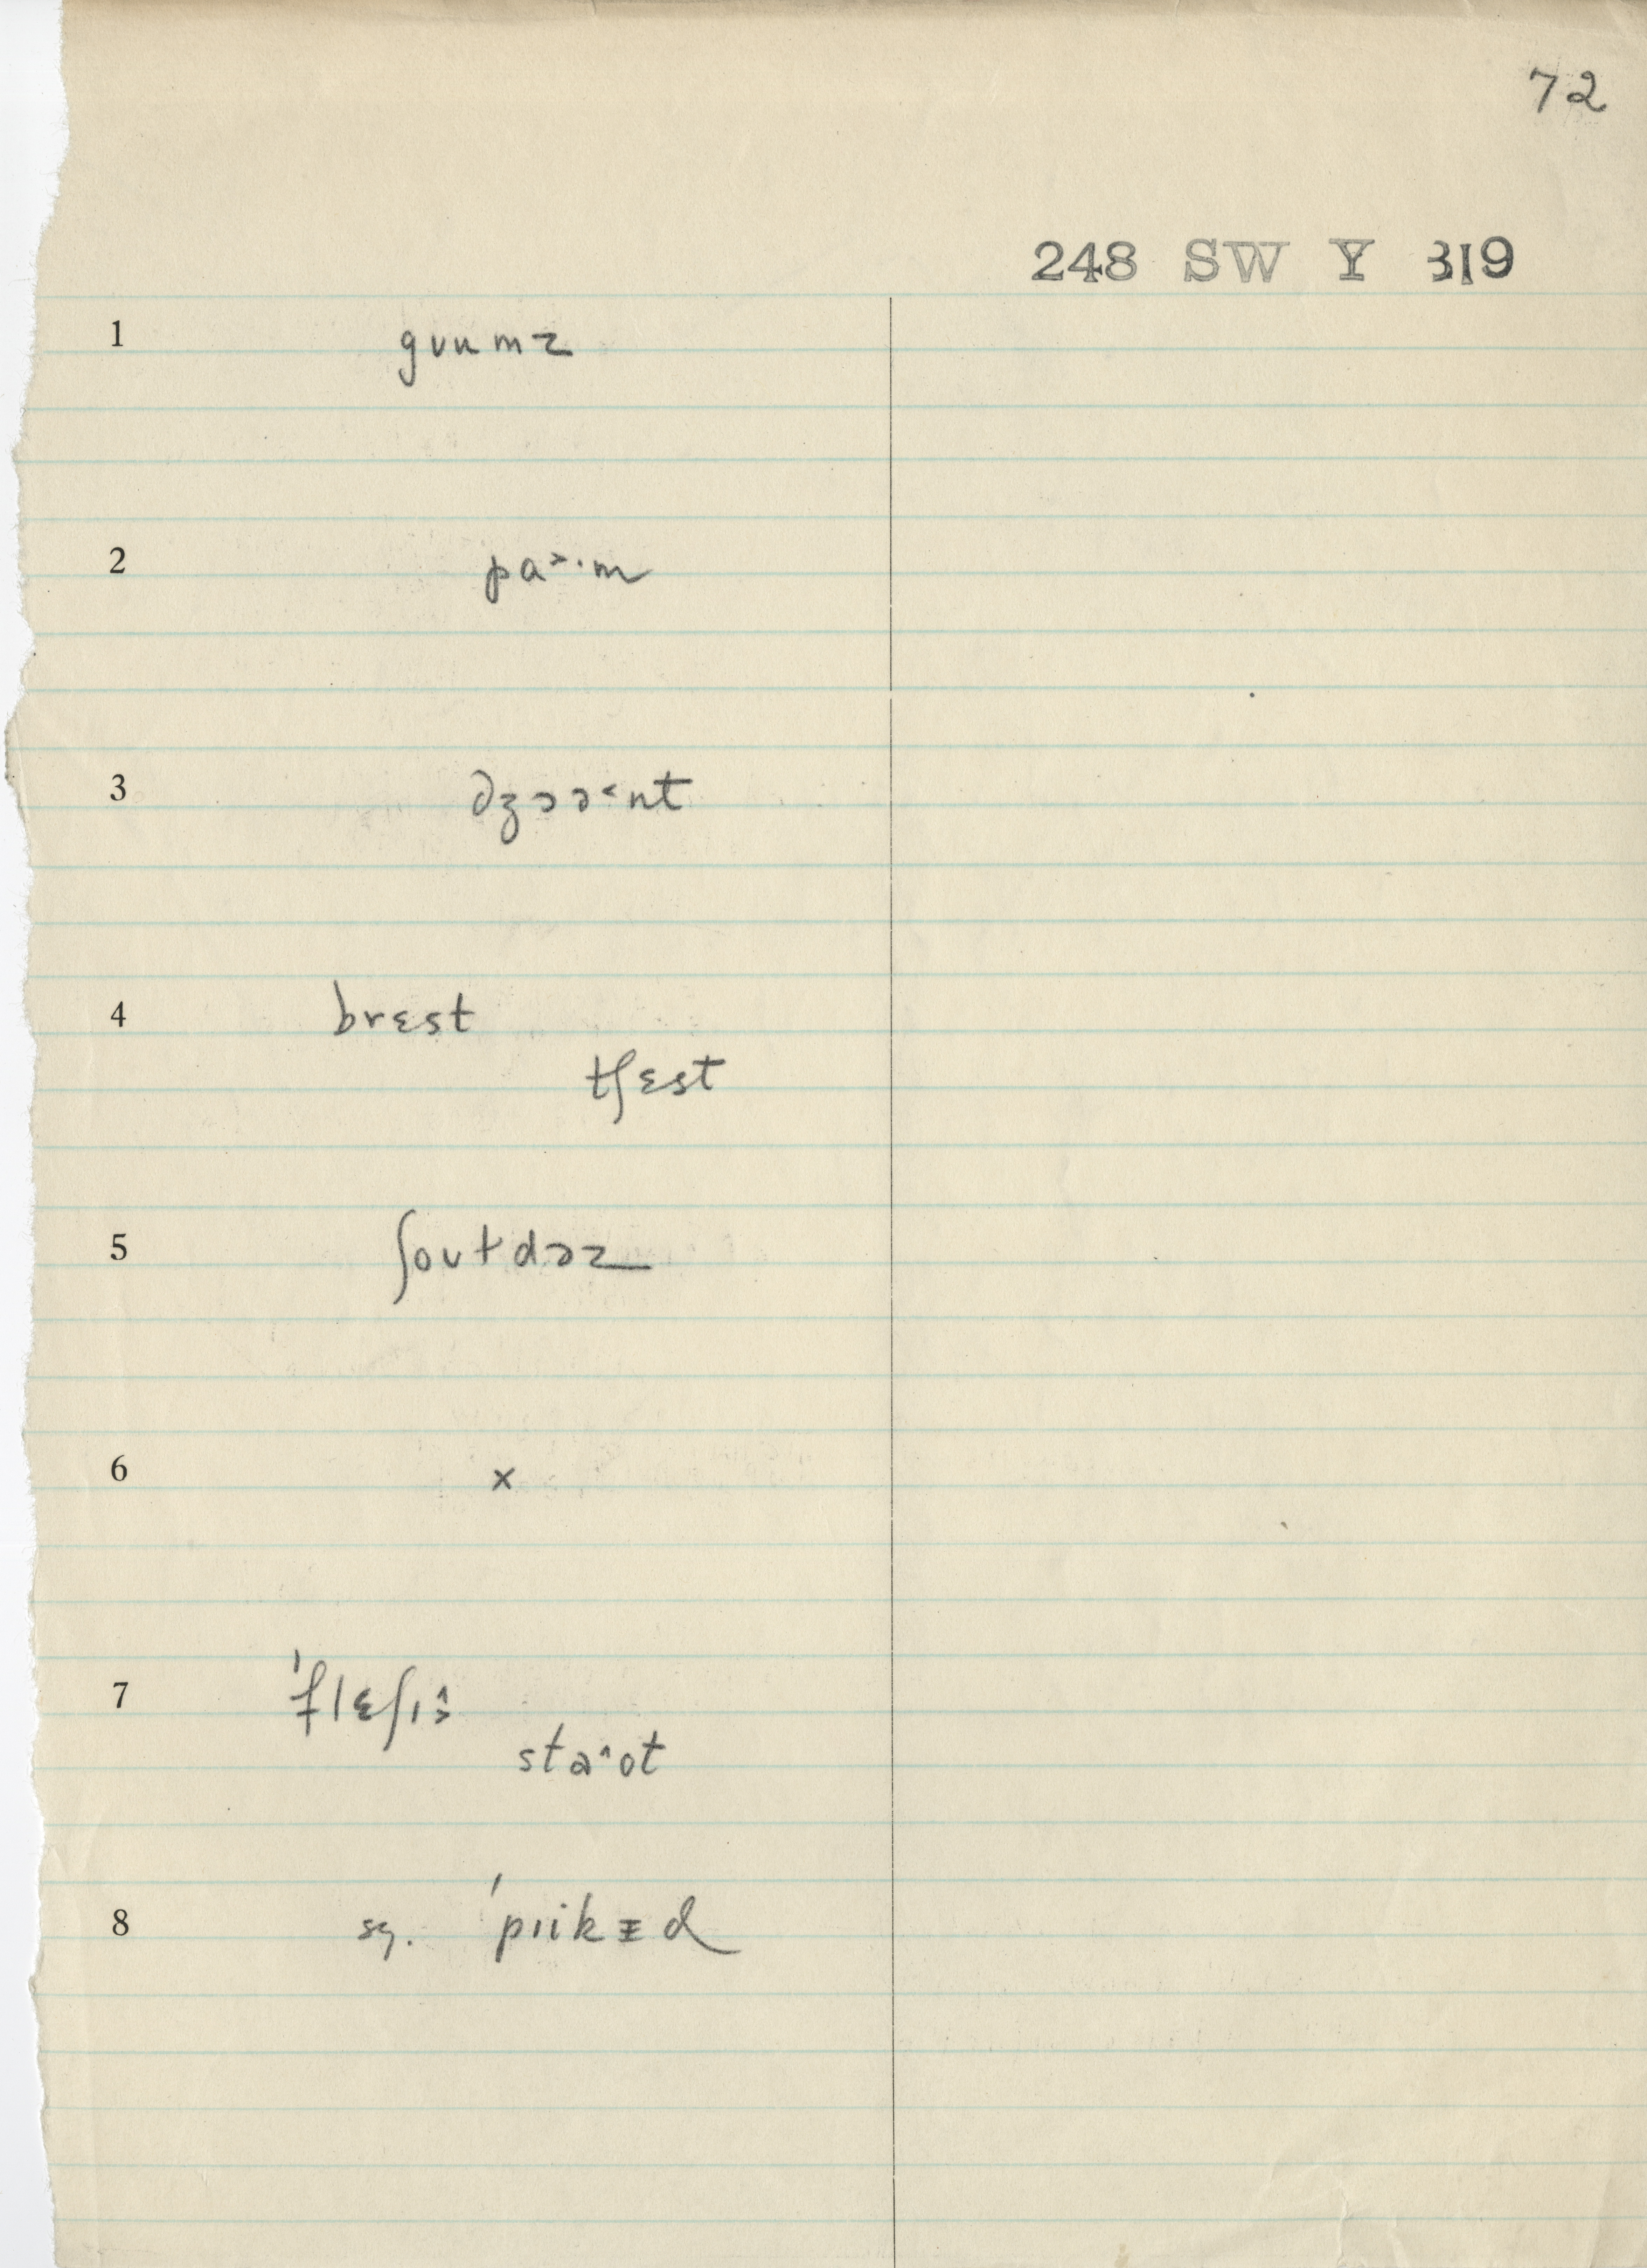 72
248 SW Y 319
1 gʊumz
2 pa˃·m
3 dʒɔɔ˂nt
4 brɛst
tʃɛst
5 ʃoʊɫdəz
6 x
7 ˈflɛʃɪ
sta˄ot
8 sg. ˈpɪikᵻd